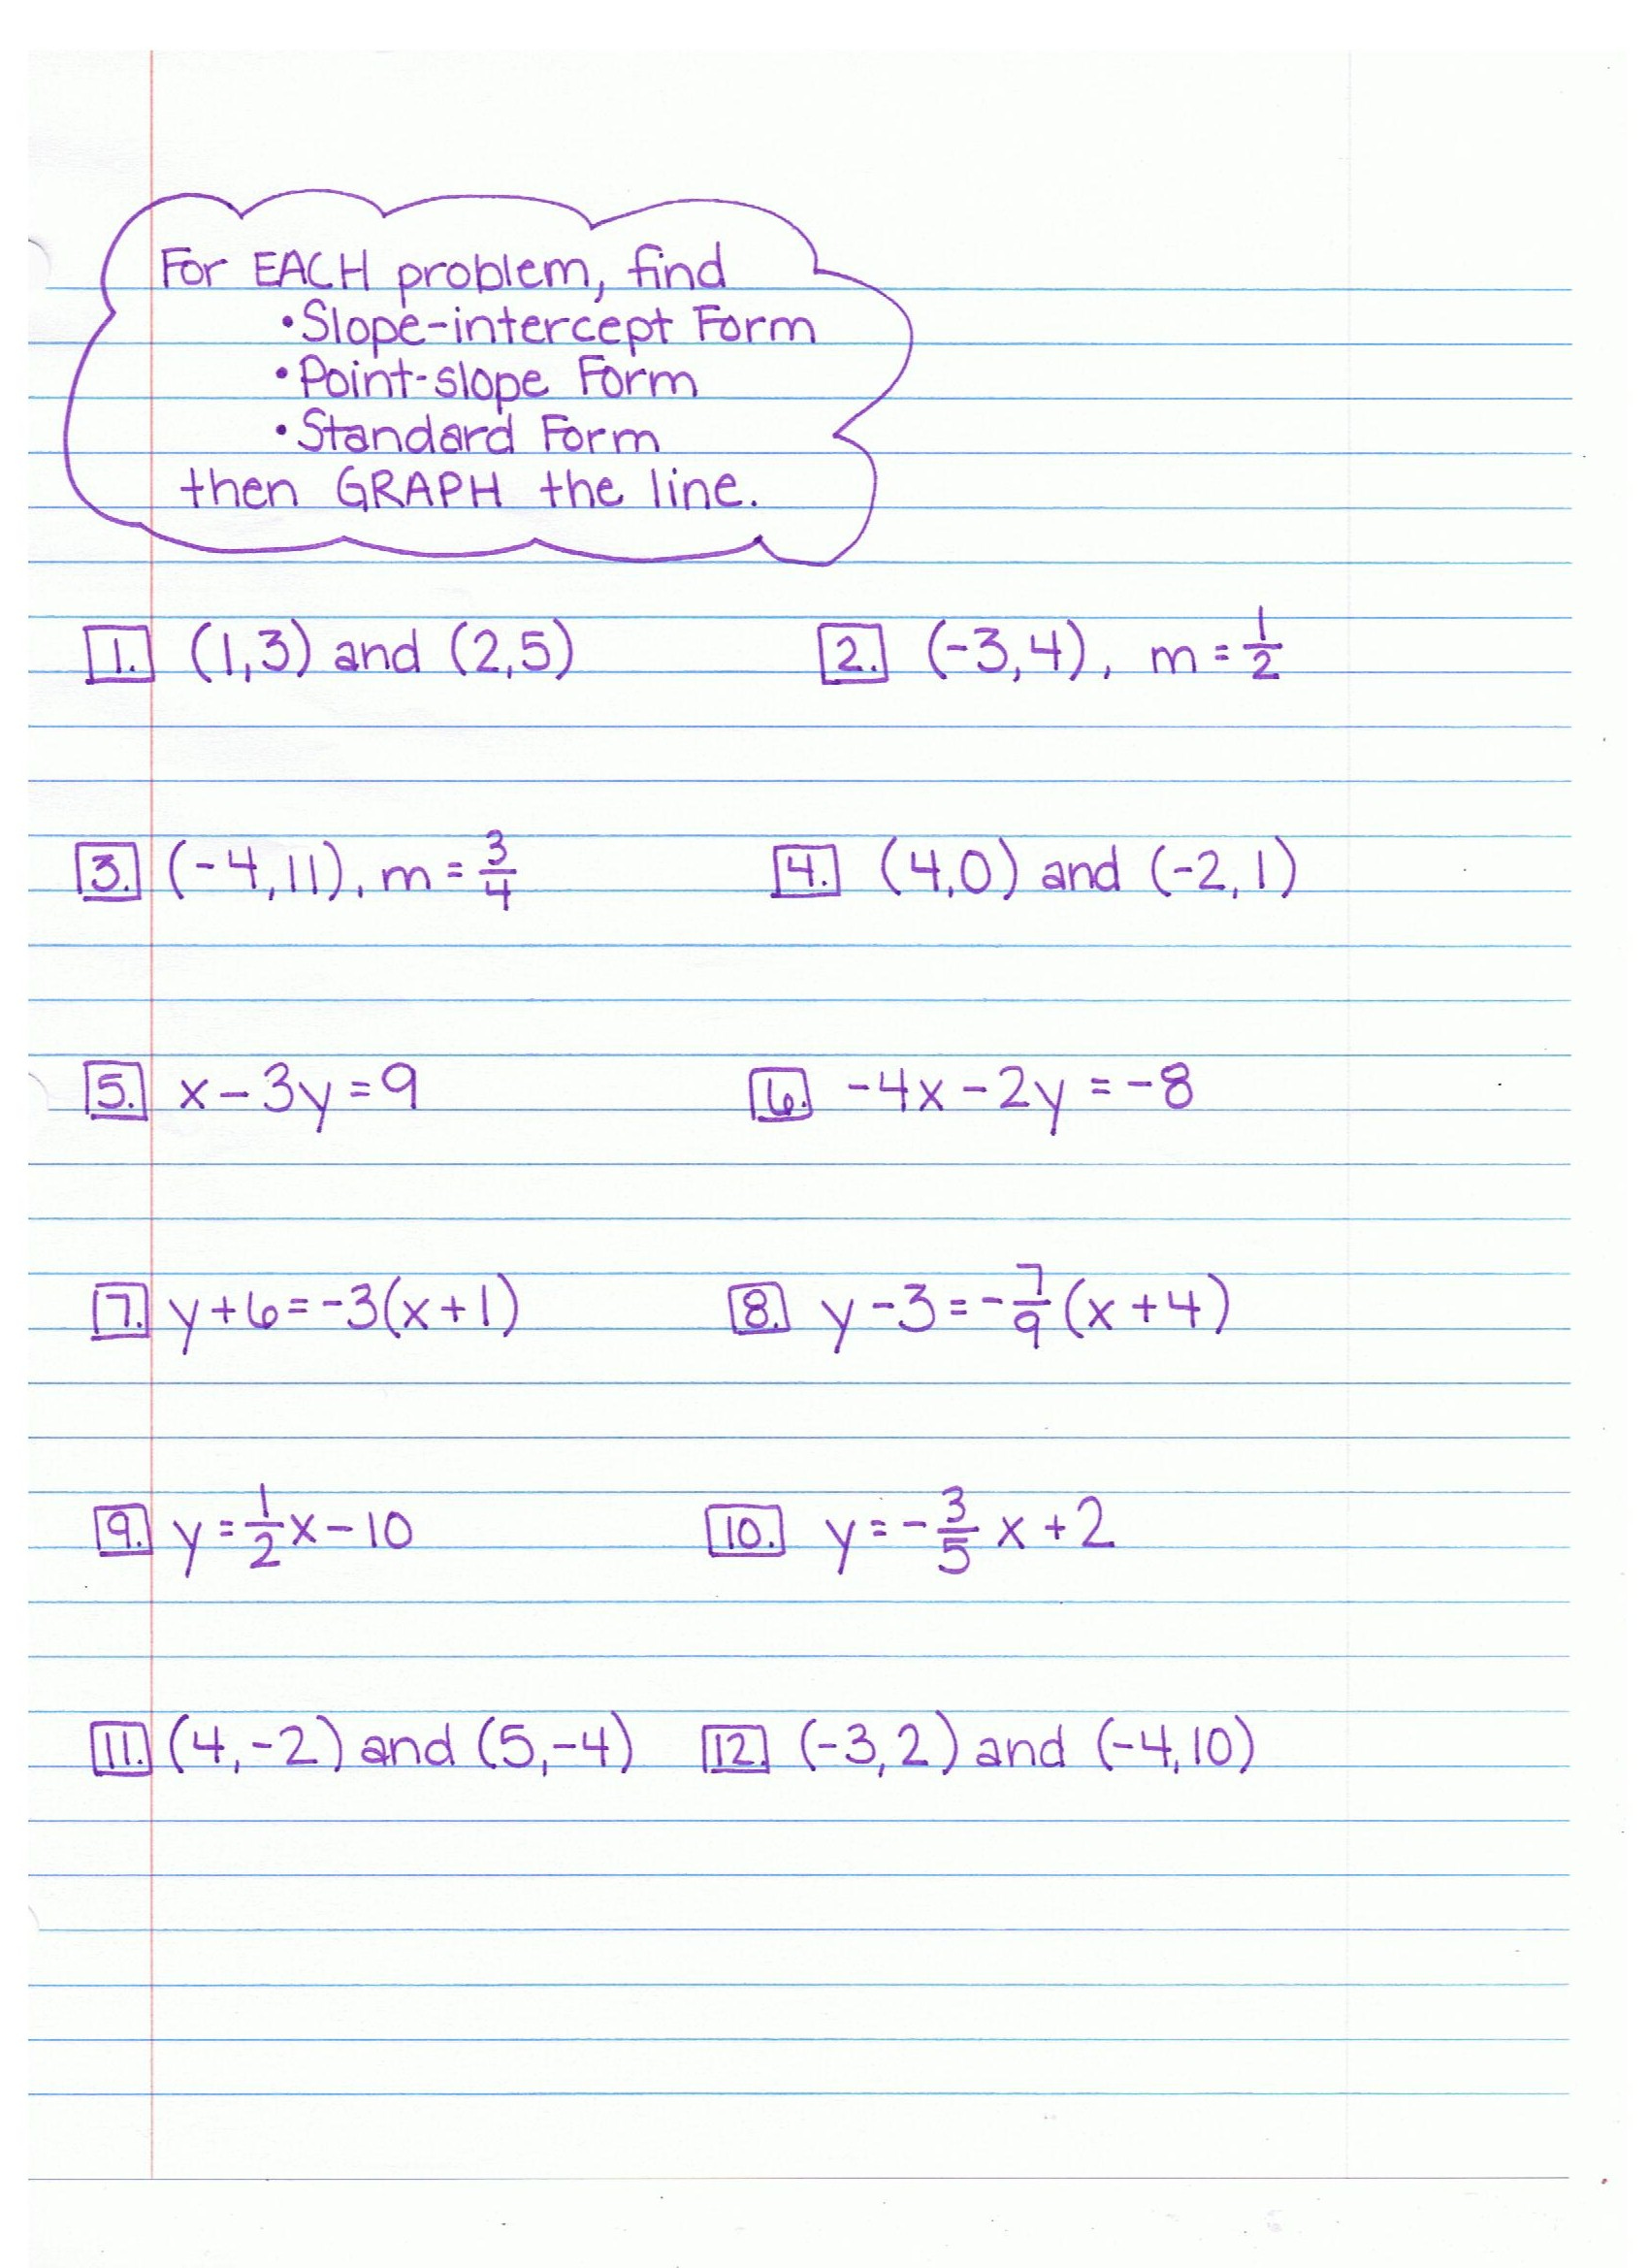 For EACH problem, find
• Slope-intercept Form
• Point-slope Form
• Standard Form
then GRAPH the line.
1. (1,3) and (2,5)
2. (-3,4), m = 1/2
3. (-4,11), m = 3/4
4. (4,0) and (-2,1)
5. x - 3y = 9
6. -4x - 2y = -8
7. y + 6 = -3(x + 1)
8. y - 3 = -7/9 (x + 4)
9. y = 1/2 x - 10
10. y = -3/5 x + 2
11. (4,-2) and (5,-4)
12. (-3,2) and (-4,10)